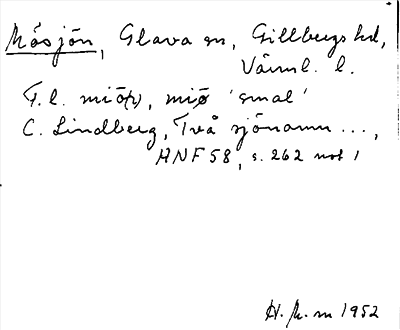 Mösjön, Glava sn, Gillbergs hd,
Värml. l.
F.l. miö(r), miø 'smal'
C. Lindberg, Två sjönamn ...,
HNF 58, s. 262 not 1
1952